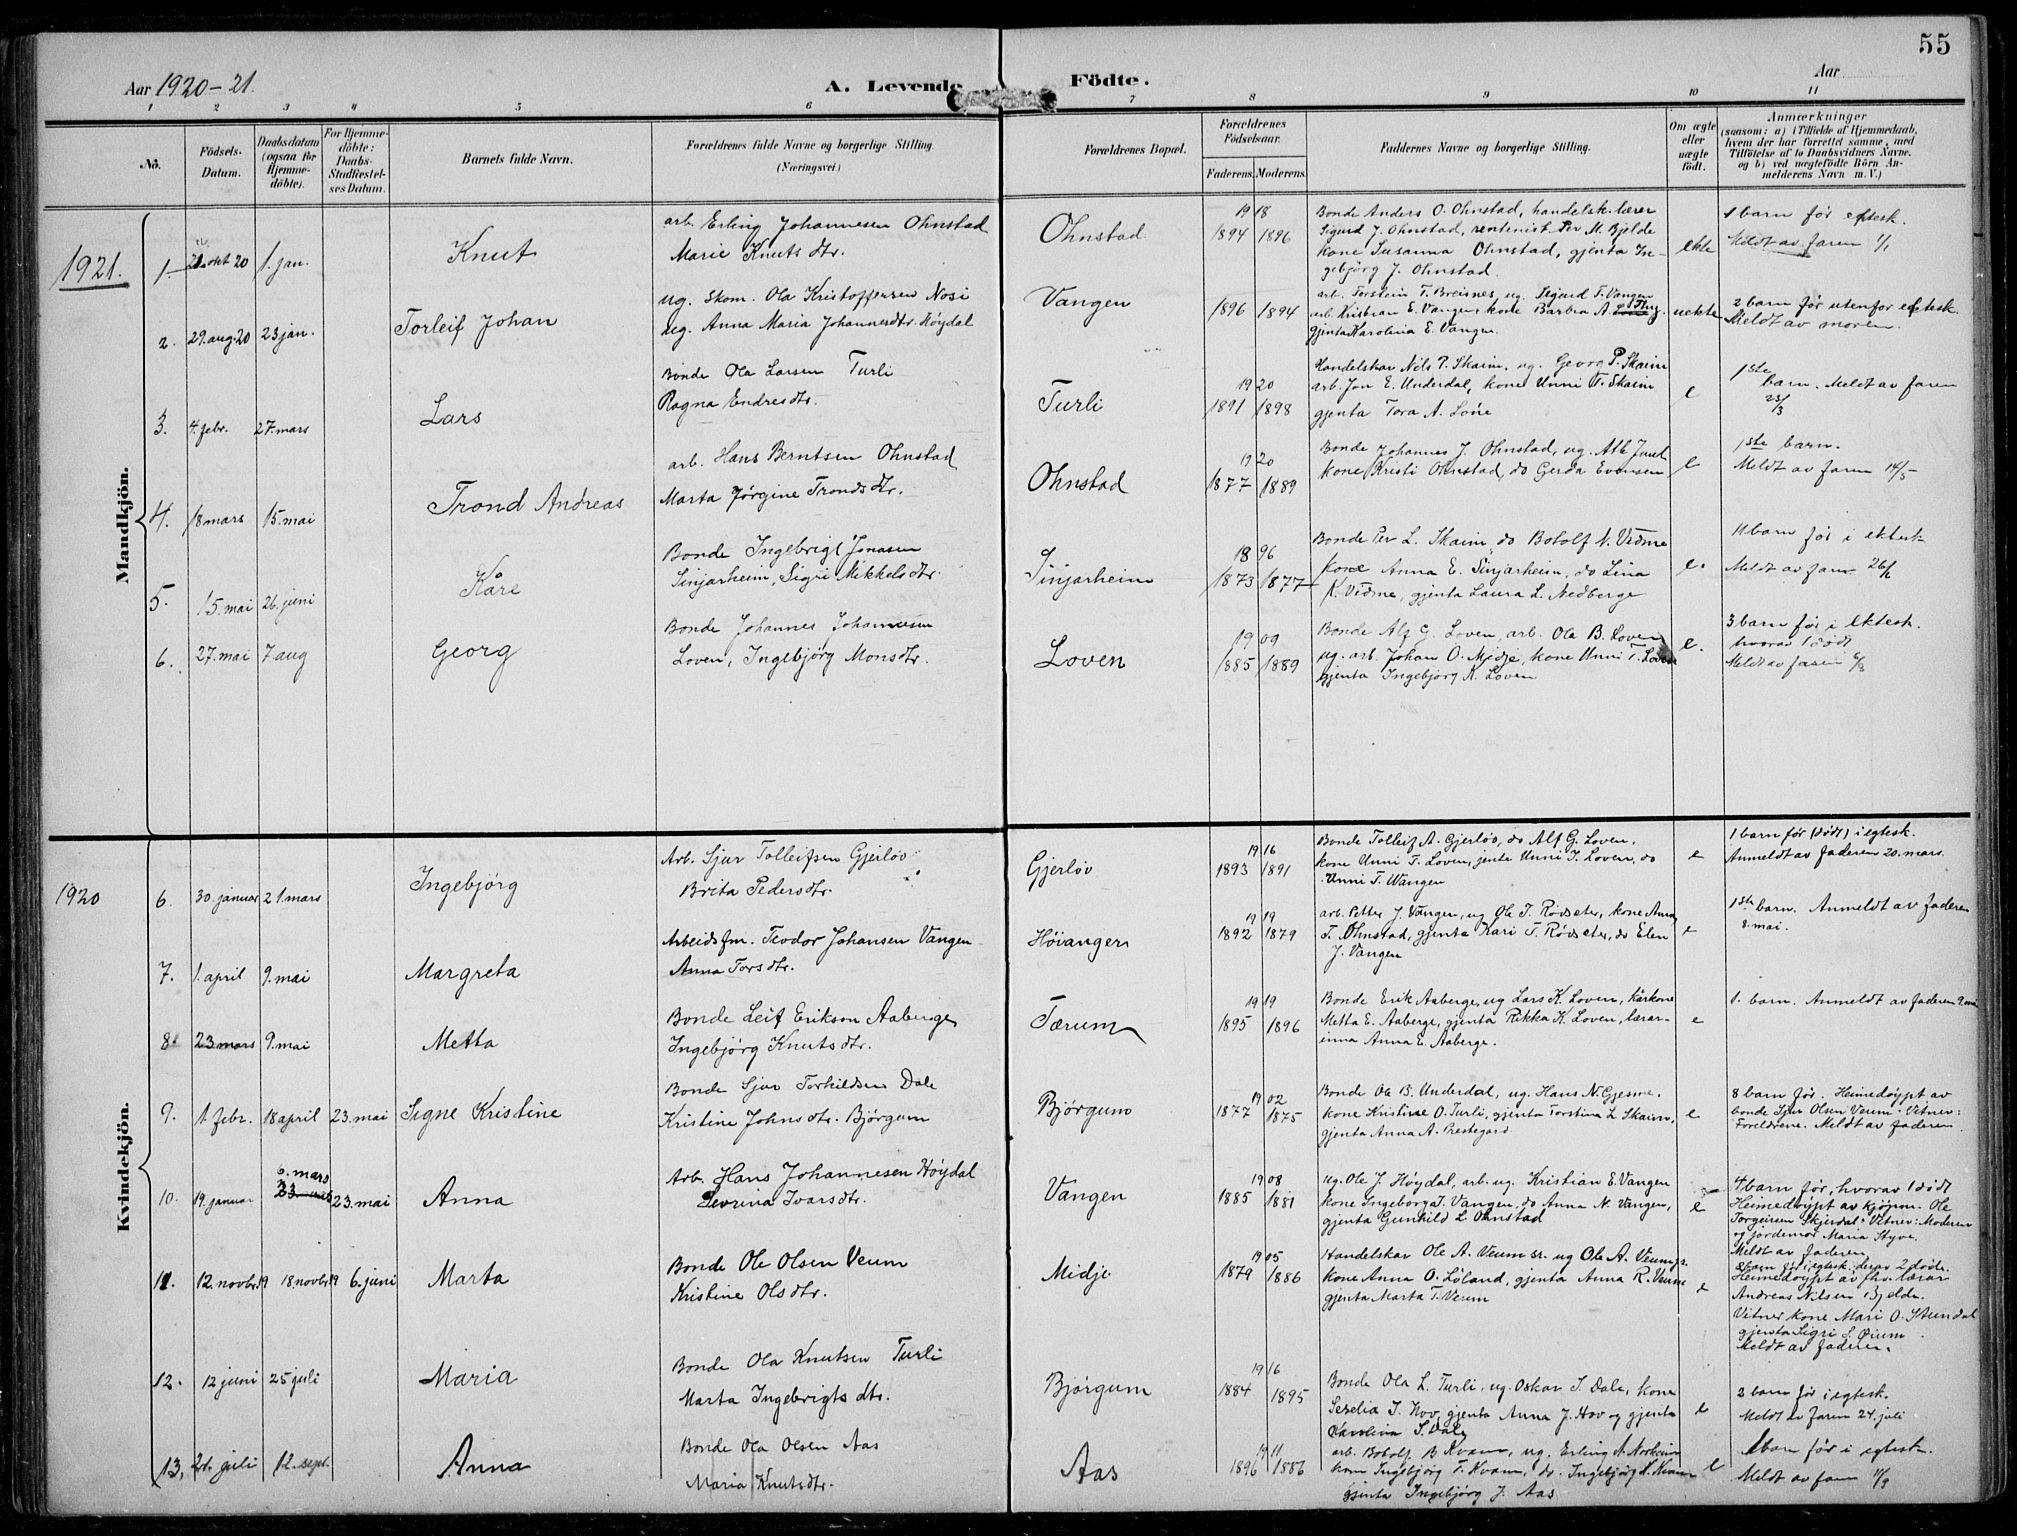 55
Aar 1920-21.
A. Levende Födte.
Aar
1 2 3 4 5 6 7 8 9 10 11
No.
Födsels-Datum.
Daabsdatum (ogsaa for Hjemme-döbte).
For Hjemme-döbte: Daabs-Stadfæstel-ses Datum.
Barnets fulde Navn.
Forældrenes fulde Navne og borgerlige Stilling. (Næringsvei)
Forældrenes Bopæl.
Forældrenes Födselsaar.
Faderens. Moderens.
Faddernes Navne og borgerlige Stilling.
Om ægte eller uægte födt.
Anmærkninger
(saasom: a) i Tilfælde af Hjemmedaab,
hvem der har forrettet samme, med
Tilföielse af to Daabsvidners Navne,
og b) ved uægtefödte Börn An-
melderens Navn m. V.)
Mandkjön.
1921.
1. okt 20 1. jan.
Knut
arb. Erling Johannesen Ohnstad
Marie Knutsdtr.
Ohnstad
1918
1894 1896
Bonde Anders O. Ohnstad, handelsk. lærer
Sigurd J. Ohnstad, rentenist Per M. Bjelde
kone Susanna Ohnstad, gjenta In-
gebjörg J. Ohnstad.
ekte
1 barn för eftesk.
Meldt av faren 1/1
2. 29. aug. 20 23 jan.
Torleif Johan
ug. Skom. Ola Kristoffersen Nosi
ug. Anna Maria Johannesdtr. Höydal
Vangen
1896 1894
arb. Torstein T. Breisnes, ug. Sigurd T. Vangen
arb. Kristian E. Vangen, kone Barbra A.
gjenta Karolina E. Vangen.
uekte
2 barn för utenfor eftesk.
Meldt av moren.
3. 4. febr. 27. mars
Lars
Bonde Ola Larsen Turli
Ragna Endresdtr.
Turli
1920
1891 1898
Handelskar Nils P. Skaim, ug. Georg P. Skaim
arb. Jon E. Underdal, kone Unni T. Skaim
gjenta Tora A. Löne
e
1ste barn. Meldt av faren
23/3
4. 18 mars 15. mai
Trond Andreas
arb. Hans Berntsen Ohnstad
Marta Jörgine Trondsdtr.
Ohnstad
1920
1877 1889
Bonde Johannes J. Ohnstad, ug. Atle Juul
kone Kristi Ohnstad, do Gerda Evensen
e
1ste barn.
Meldt av faren 14/5
5. 15. mai 26. juni
Kåre
Bonde Ingebrigt Jonasen
Sinjarheim, Sigri Mikkelsdtr.
Sinjarheim
1896
1873 1877
Bonde Per L. Skaim, do Botolf N. Vidme
kone Anna E. Sinjarheim, do Lina
K. Vidme, gjenta Laura L. Nedberge
e.
11 barn för i ektesk
Meldt av faren 26/6
6. 27. mai 7. aug
Georg
Bonde Johannes Johannesen
Loven, Ingebjörg Monsdtr.
Loven
1909
1885 1889
Bonde Alf G. Loven, arb. Ola B. Loven
ug. arb. Johan O. Midje, kone Unni T. Loven
gjenta Ingebjörg K. Loven
e.
3 barn för i ektesk.
hvorav 1 död
Meldt av faren 6/8
Kvindekjön.
1920
6. 30. januar 21. mars
Ingebjörg
Arb. Sjur Tolleifsen Gjerlöv
Brita Pedersdtr.
Gjerlöv
1916
1893 1891
Bonde Tolleif A. Gjerlöv, do Alf G. Loven,
kone Unni T. Loven, jente Unni J. Loven, do
Unni T. Wangen
e
1 barn för (död) i egtesk.
Anmeldt av faderen 20. mars.
7. 1. april 9. mai
Margreta
Arbeidsfm. Teodor Johansen Vangen
Anna Torsdtr.
Höiangen
1919
1892 1879
arb. Petter J. Vangen, ug Ole T. Rödseter, kone Anna
T. Ohnstad, gjenta Kari T. Rödseter, do Elen
J. Vangen
e
1ste barn. Anmeldt av faderen
8. mai.
8 23 mars 9. mai
Metta
Bonde Leif Erikson Aaberge
Ingebjörg Knutsdtr.
Tærum
1919
1895 1896
Bonde Erik Aaberge, ug Lars K. Loven, kårkone
Metta E. Aaberge, gjenta Rikka K. Loven, lærar-
inna Anna E. Aaberge.
e
1. barn. Anmeldt av faderen 9. mai
9. 1. febr. 18 april 23. mai
Signe Kristine
Bonde Sjur Torkildsen Dale
Kristine Johnsdtr. Björgum
Björgum
1902
1877 1875
Bonde Ole B. Underdal, ug. Hans N. Gjesme,
kone Kristine O. Turli, gjenta Torstina L. Skaim,
gjenta Anna A. Prestegard
e
8 barn för. Heimedöypt av
bonde Sjur Olsen Veum. Vitner:
Foreldrene. Meldt av faderen.
10. 19. januar 6. mars 23. mai
Anna
Arb. Hans Johannesen Höydal
Sevrina Ivarsdtr.
Vangen
1908
1885 1881
ug. Ole J. Höydal, arb. ug. Kristian E. Vangen
kone Ingeborg I. Vangen, do Anna N. Vangen,
gjenta Gunhild L. Ohnstad
e
4 barn för, hvorav 1 död
Heimedöypt av kjöpm. Ole
Torgeirsen Skjerdal. Vitner: Moderen
og jordemor Maria Styve.
Meldt av faderen
11. 12. novbr. 19 18 novbr. 19 6. juni
Marta
Bonde Ole Olsen Veum
Kristine Olsdtr.
Midje
1905
1879 1886
Handelskar Ole A. Veum sr. ug Ole A. Veum jr.
kone Anna O. Löland, gjenta Anna R. Veum
gjenta Marta T. Veum
e
barn för i egtesk. derav 2 döde.
Heimedöypt av fhv. lærar
Andreas Nilsen Bjelde.
Vitner kone Mari O. Stundal
gjenta Sigri S. Öium.
Meldt av faderen.
12. 12 juni 25 juli
Maria
Bonde Ola Knutsen Turli
Marta Ingebrigtsdtr.
Björgum
1916
1884 1895
Bonde Ola L. Turli, ug. Oskar S. Dale, kone
Seselia I. Hov, gjenta Anna J. Hov og gjenta
Karolina S. Dale
e
2 barn för i egtesk.
Meldt av faren 24. juli
13, 21. juli 12. sept.
Anna
Bonde Ola Olsen Aas
Maria Knutsdtr.
Aas
1911
1896 1886
arb. Botolf B Kvam, ug. Erling A. Norheim
kone Ingebjörg T. Kvam, do. Ingebjörg H. Kvam
gjenta Ingebjörg J. Aas
e
1 barn för i egtesk.
Meldt av faren 11/9